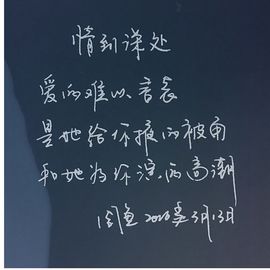 情到深处
爱的难以言表
是她给你掖的被角
和她为你流的高潮
周鱼 2020 3月13日